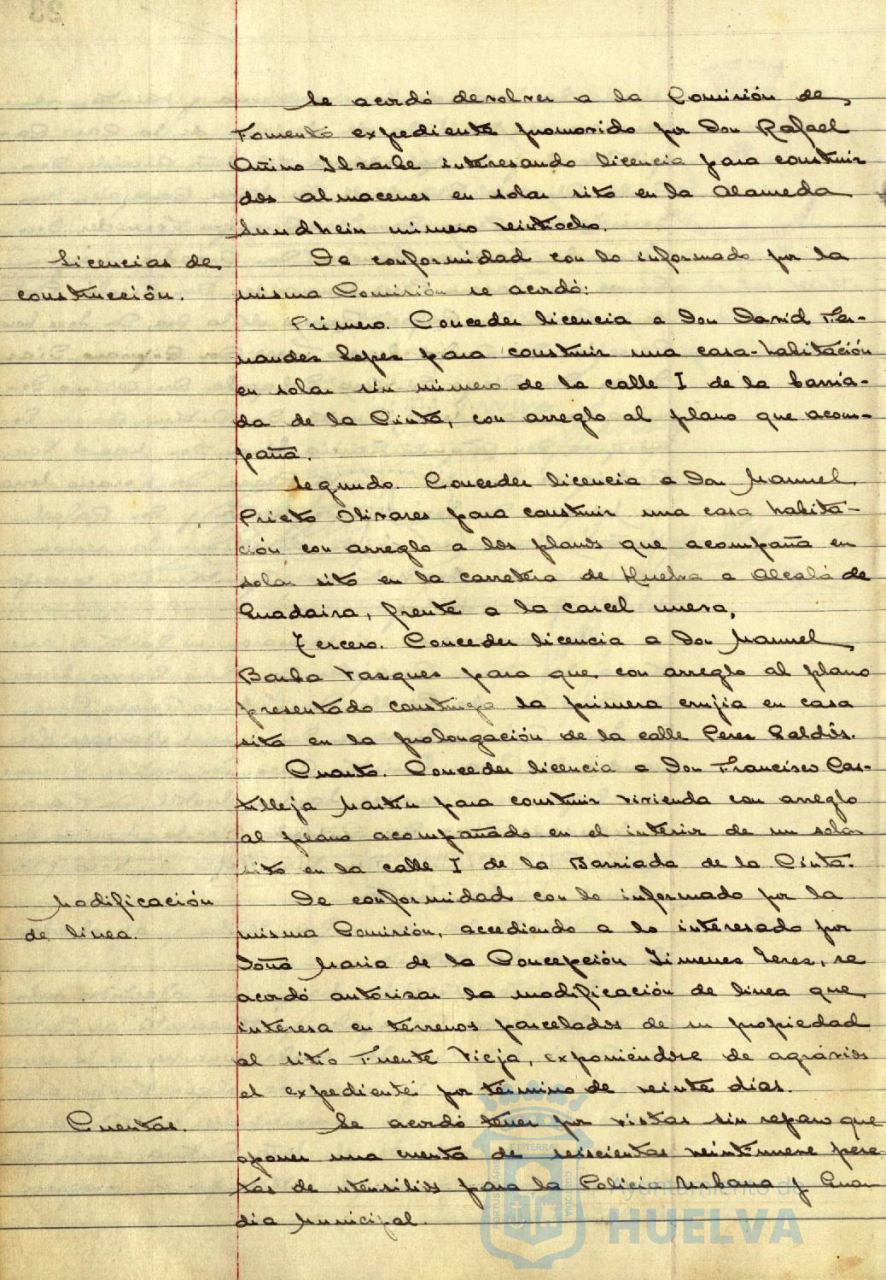 Se acordó devolver a la Comisión de
Fomento expediente promovido por Don Rafael
interesando licencia para construir
dos almacenes en solar sito en la Alameda
Sundhein número veintiocho.
Licencias de
construcción.
De conformidad con lo informado por la
misma Comisión se acordó:
Primero. Conceder licencia a Don David Fer-
nandez Lopez para construir una casa-habitación
en solar sin número de la calle I de la barria-
da de la Cinta, con arreglo al plano que acom-
paña.
Segundo. Conceder licencia a Don Manuel
Prieto Olivares para construir una casa habita-
ción con arreglo a los planos que acompaña en
solar sito en la carretera de Huelva a Alcalá de
Guadaira, frente a la carcel nueva.
Tercero. Conceder licencia a Don Manuel
Barba Vazquez para que con arreglo al plano
presentado construya la primera crujia en casa
sita en la prolongación de la calle Perez Galdós.
Cuarto. Conceder licencia a Don Francisco Cas-
tilleja Martin para construir vivienda con arreglo
al plano acompañado en el interior de un solar
sito en la calle I de la Barriada de la Cinta.
Modificación
de linea.
De conformidad con lo informado por la
misma Comisión, accediendo a lo interesado por
Doña Maria de la Concepción Jimenez Perez, se
acordó autorizar la modificación de linea que
interesa en terrenos parcelados de su propiedad
al sitio Fuente Vieja, exponiéndose de agrávios
el expediente por término de veinte días.
Cuentas.
Se acordó tener por vistas sin reparo que
oponer una cuenta de seiscientas veintinueve pese
tas de utensilios para la Policia Urbana y Guar
dia Municipal.
Ayuntamiento de
HUELVA